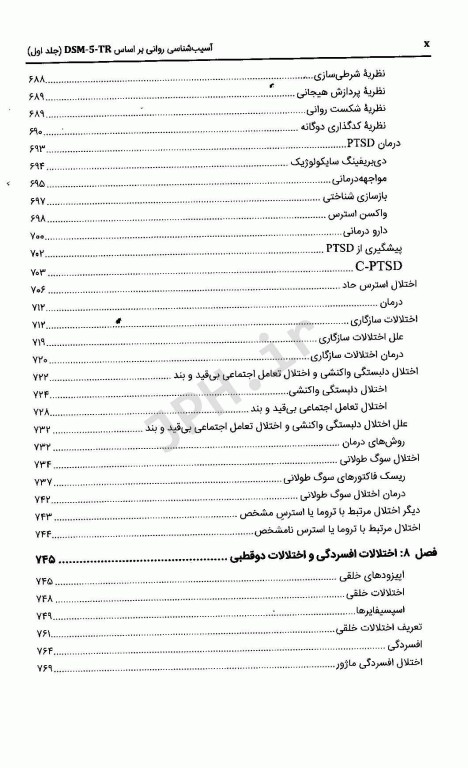 x آسیب‌شناسی روانی بر اساس DSM-5-TR (جلد اول)
نظریهٔ شرطی‌سازی ۶۸۸
نظریهٔ پردازش هیجانی ۶۸۹
نظریهٔ شکست روانی ۶۸۹
نظریهٔ کدگذاری دوگانه ۶۹۰
درمان PTSD ۶۹۳
دی‌بریفینگ سایکولوژیک ۶۹۴
مواجهه‌درمانی ۶۹۵
بازسازی شناختی ۶۹۷
واکسن استرس ۶۹۸
دارو درمانی ۷۰۰
پیشگیری از PTSD ۷۰۲
C-PTSD ۷۰۳
اختلال استرس حاد ۷۰۶
درمان ۷۱۲
اختلالات سازگاری ۷۱۲
علل اختلالات سازگاری ۷۱۹
درمان اختلالات سازگاری ۷۲۰
اختلال دلبستگی واکنشی و اختلال تعامل اجتماعی بی‌قید و بند ۷۲۲
اختلال دلبستگی واکنشی ۷۲۴
اختلال تعامل اجتماعی بی‌قید و بند ۷۲۸
علل اختلال دلبستگی واکنشی و اختلال تعامل اجتماعی بی‌قید و بند ۷۳۲
روش‌های درمان ۷۳۲
اختلال سوگ طولانی ۷۳۴
ریسک فاکتورهای سوگ طولانی ۷۳۷
درمان اختلال سوگ طولانی ۷۴۲
دیگر اختلال مرتبط با تروما یا استرس مشخص ۷۴۳
اختلال مرتبط با تروما یا استرس نامشخص ۷۴۴
فصل ۸: اختلالات افسردگی و اختلالات دوقطبی ۷۴۵
اپیزودهای خلقی ۷۴۵
اختلالات خلقی ۷۴۸
اسپسیفایرها ۷۴۹
تعریف اختلالات خلقی ۷۶۱
افسردگی ۷۶۴
اختلال افسردگی ماژور ۷۶۹
JPH.ir